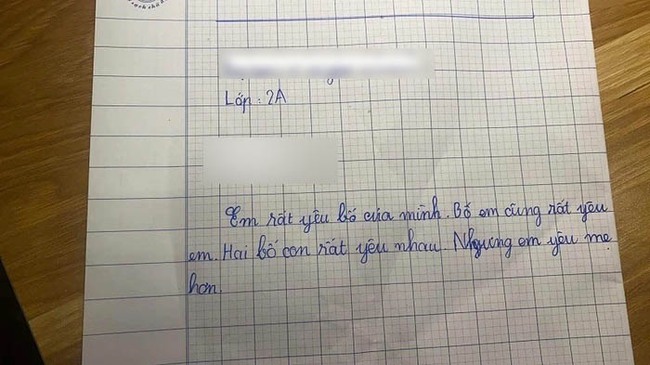 Lớp : 2A
Em rất yêu bố của mình. Bố em cũng rất yêu
em. Hai bố con rất yêu nhau. Nhưng em yêu mẹ
hơn.